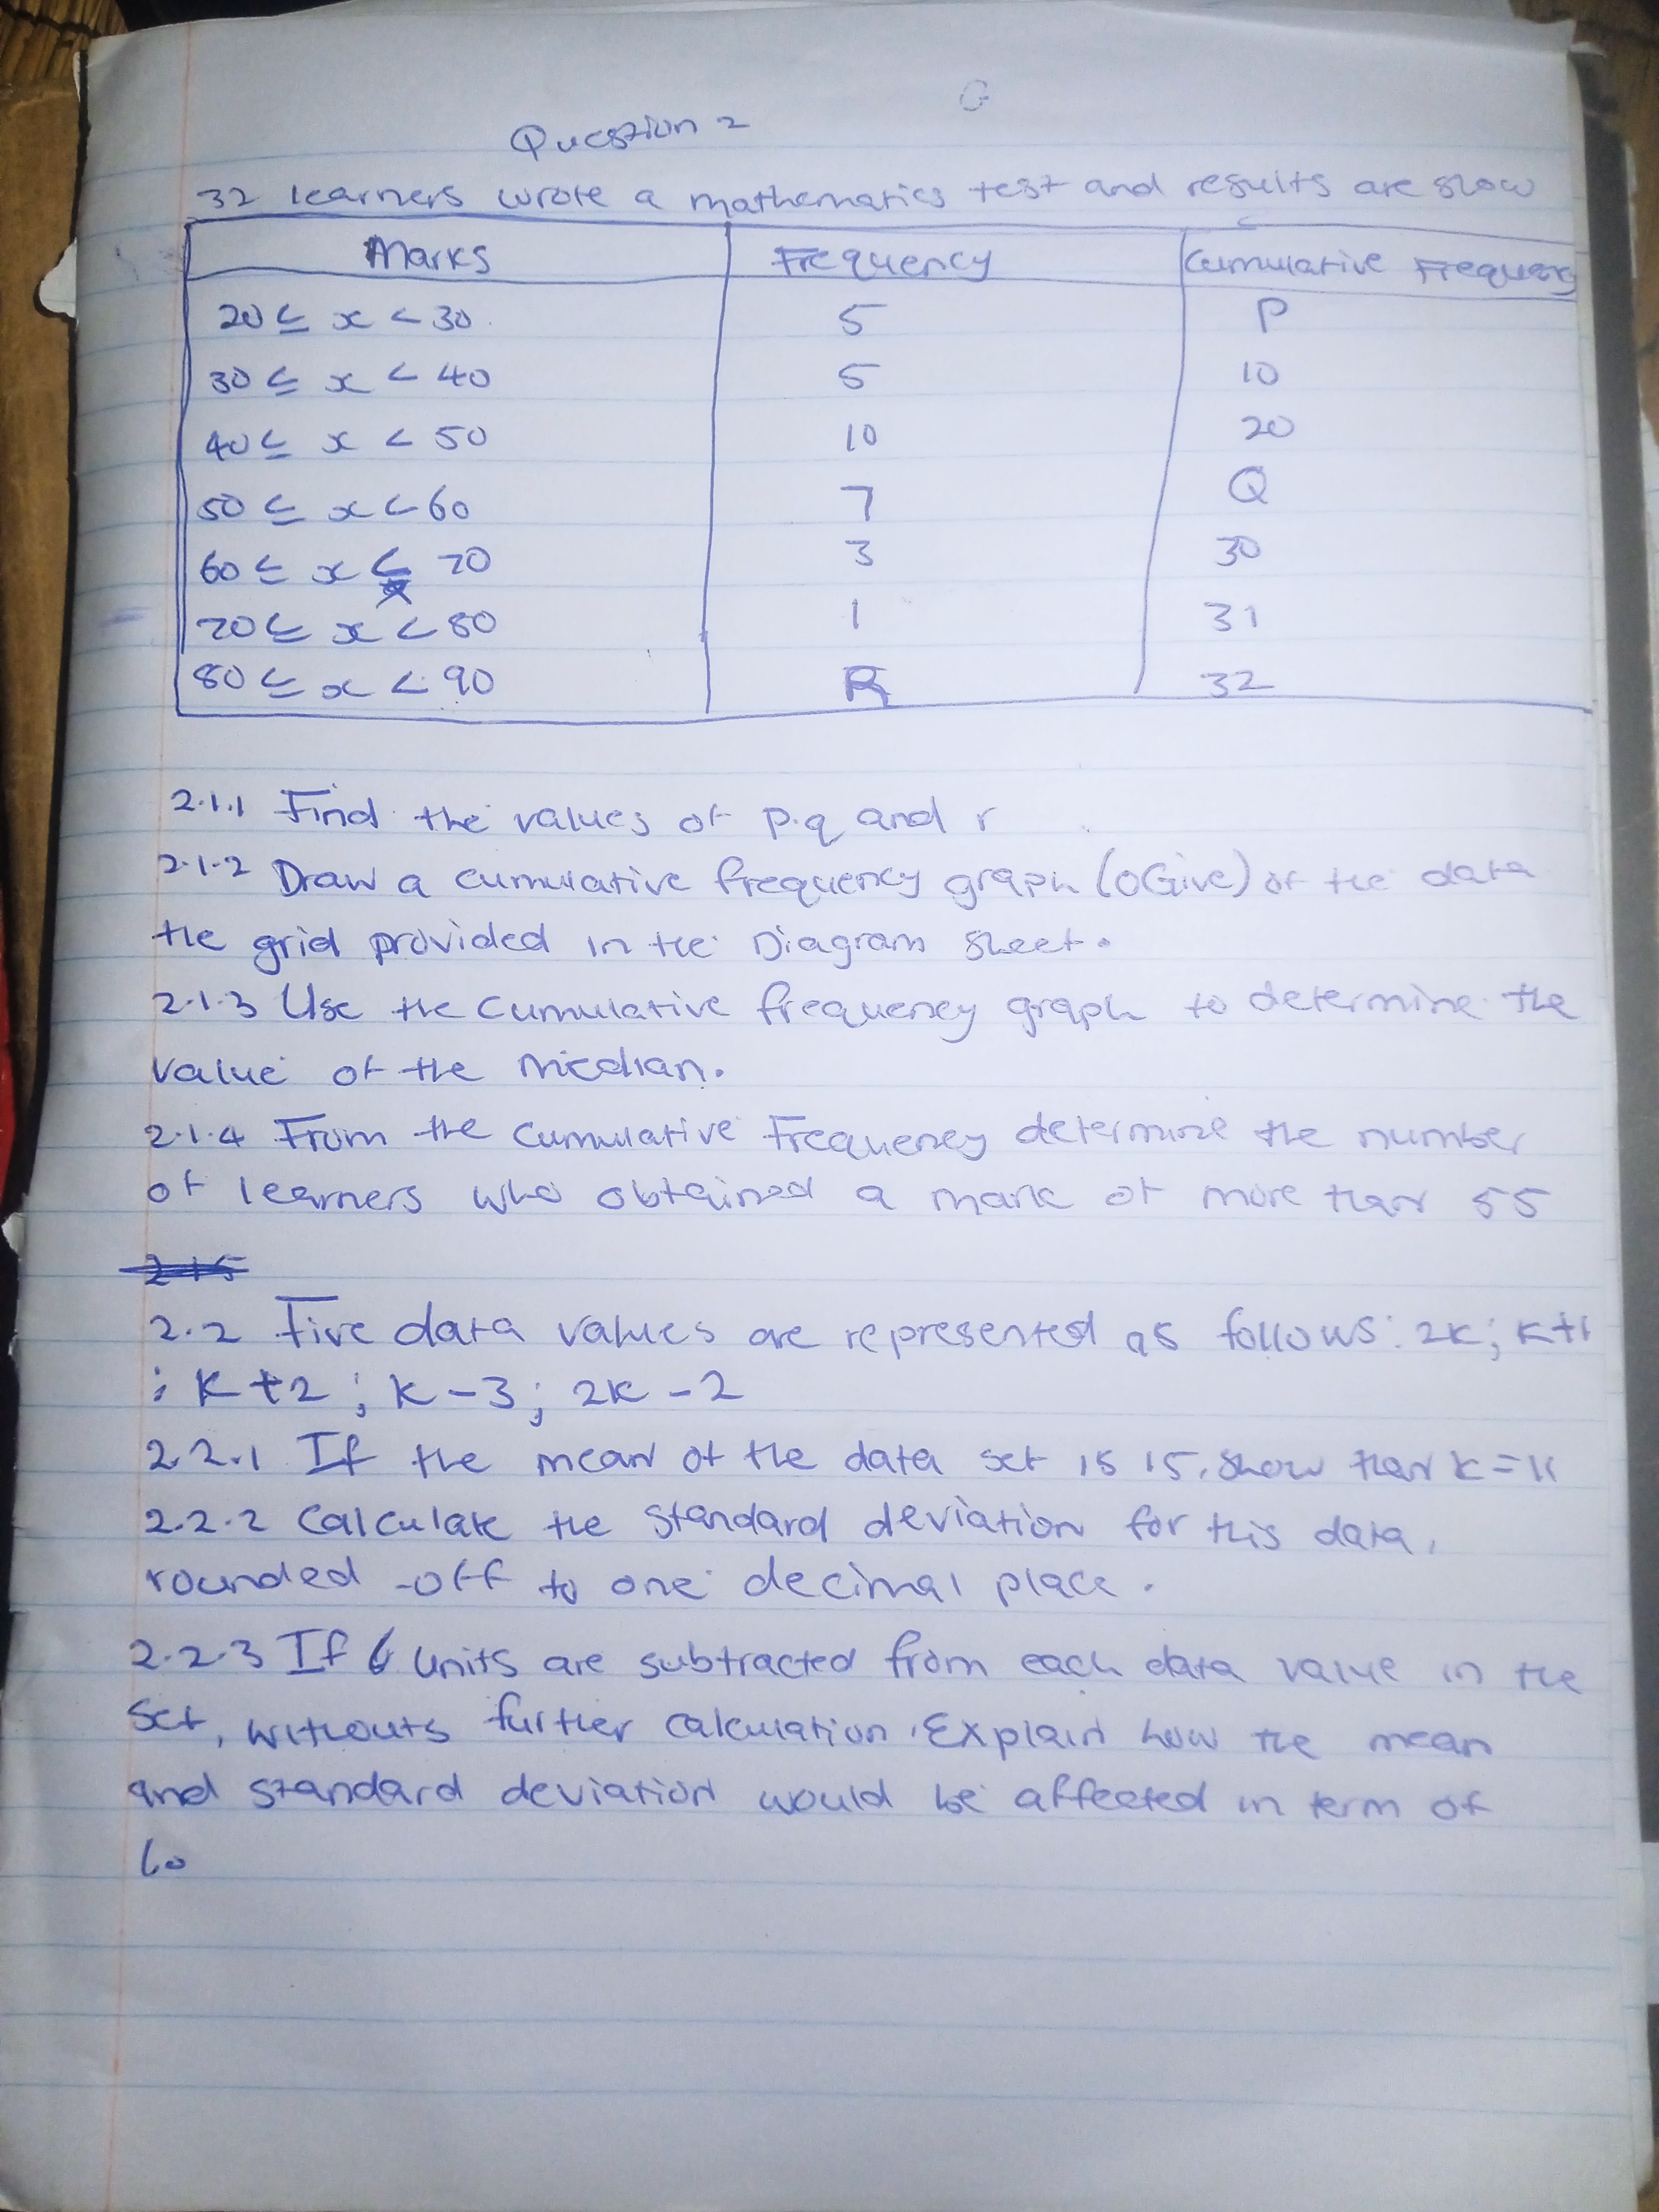 Question 2
32 learners wrote a mathematics test and results are show
Marks Frequency Cumulative Frequency
20 ≤ x < 30 5 P
30 ≤ x < 40 5 10
40 ≤ x < 50 10 20
50 ≤ x < 60 7 Q
60 ≤ x < 70 3 30
70 ≤ x < 80 1 31
80 ≤ x < 90 R 32
2.1.1 Find the values of p.q and r
2.1.2 Draw a cumulative frequency graph (OGive) of the data
the grid provided in the Diagram sheet.
2.1.3 Use the cumulative frequency graph to determine the
value of the median.
2.1.4 From the cumulative Frequency determine the number
of learners who obtained a mark of more than 55
2.2 Five data values are represented as follows: 2k; k+1
; k+2; k-3; 2k-2
2.2.1 If the mean of the data set is 15, show that k=11
2.2.2 Calculate the standard deviation for this data,
rounded-off to one decimal place.
2.2.3 If 6 units are subtracted from each data value in the
set, withouts further calculation. Explain how the mean
and standard deviation would be affected in term of